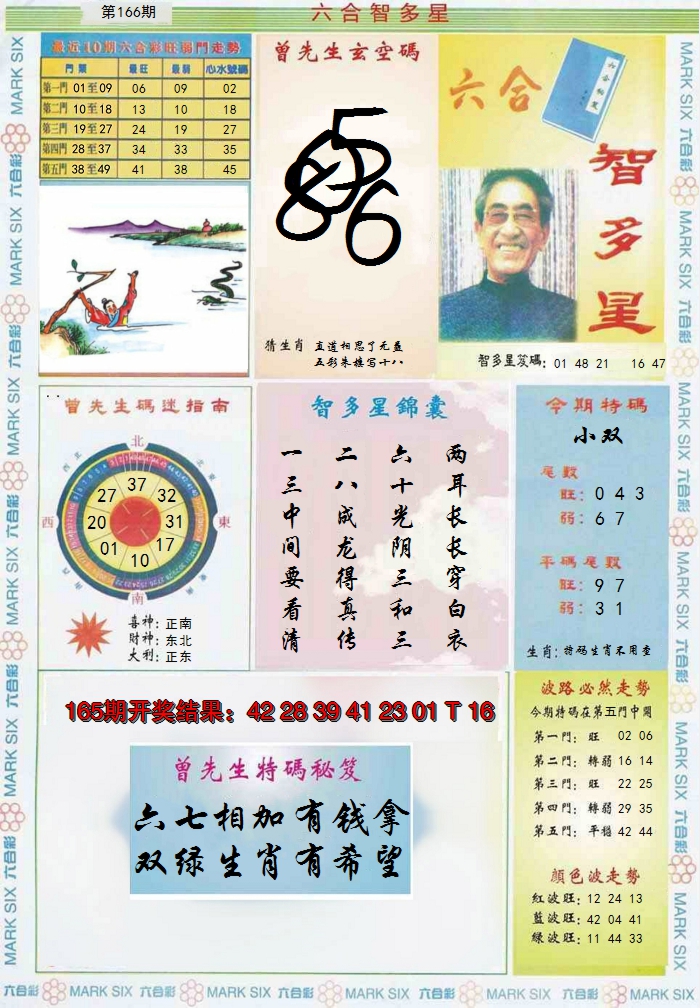 第166期
六合智多星
最近10期六合彩旺弱門走勢
門類 最旺 最弱 心水號碼
第一門 01至09 06 09 02
第二門 10至18 13 10 18
第三門 19至27 24 19 27
第四門 28至37 34 33 35
第五門 38至49 41 38 45
曾先生玄空碼
5
8 6
猜生肖 直道相思了无益
五彩朱撲写十八
六合
智多星
智多星笈碼: 01 48 21 16 47
曾先生碼迷指南
北
西
東
南
37
32
31
17
10
01
20
27
喜神: 正南
財神: 东北
大利: 正东
智多星錦囊
两耳长长穿白衣
六十光阴三和三
二八成龙得真传
一三中间要看清
今期特碼
小双
尾數
旺: 0 4 3
弱: 6 7
平碼尾數
旺: 9 7
弱: 3 1
生肖: 特码生肖不用查
165期开奖结果: 42 28 39 41 23 01 T 16
曾先生特碼秘笈
六七相加有钱拿
双绿生肖有希望
波路必然走勢
今期特碼在第五門中開
第一門: 旺 02 06
第二門: 轉弱 16 14
第三門: 旺 22 25
第四門: 轉弱 29 35
第五門: 平穩 42 44
顏色波走勢
紅波旺: 12 24 13
藍波旺: 42 04 41
綠波旺: 11 44 33
六合彩 MARK SIX 六合彩 MARK SIX 六合彩 MARK SIX 六合彩 MARK SIX 六合彩